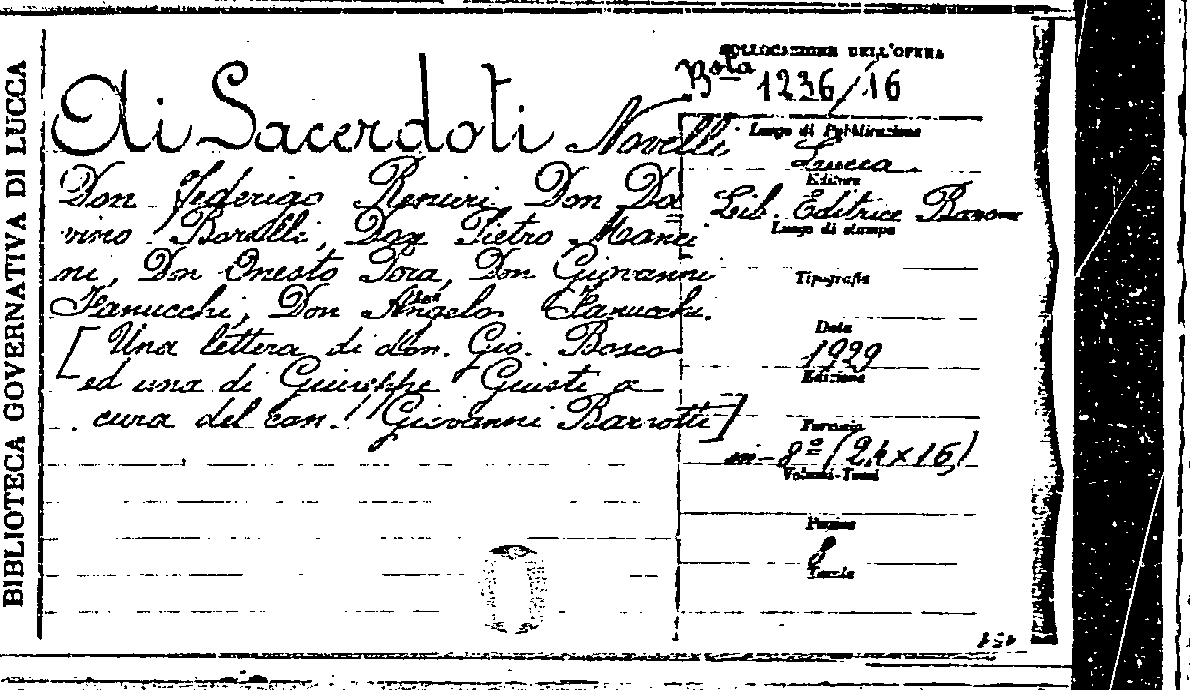 BIBLIOTECA GOVERNATIVA DI LUCCA
COLLOCAZIONE DELL'OPERA
Bta 1236/16
Ai Sacerdoti Novelli
Don Federigo Ranieri, Don Da=
vino Borelli, Don Pietro Manci
ni, Don Onesto Pora, Don Giovanni
Fanucchi, Don Angelo Fanucchi.
[Una lettera di don. Gio. Bosco
ed una di Giuseppe Giusti a
cura del can. Giovanni Barsotti]
Luogo di Pubblicazione
Lucca.
Editore
Lib. Editrice Baroni
Luogo di stampa
Tipografia
Data
1929
Edizione
Formato
in-8º (24x16)
Volumi-Tomi
Pagine
8
Tavole